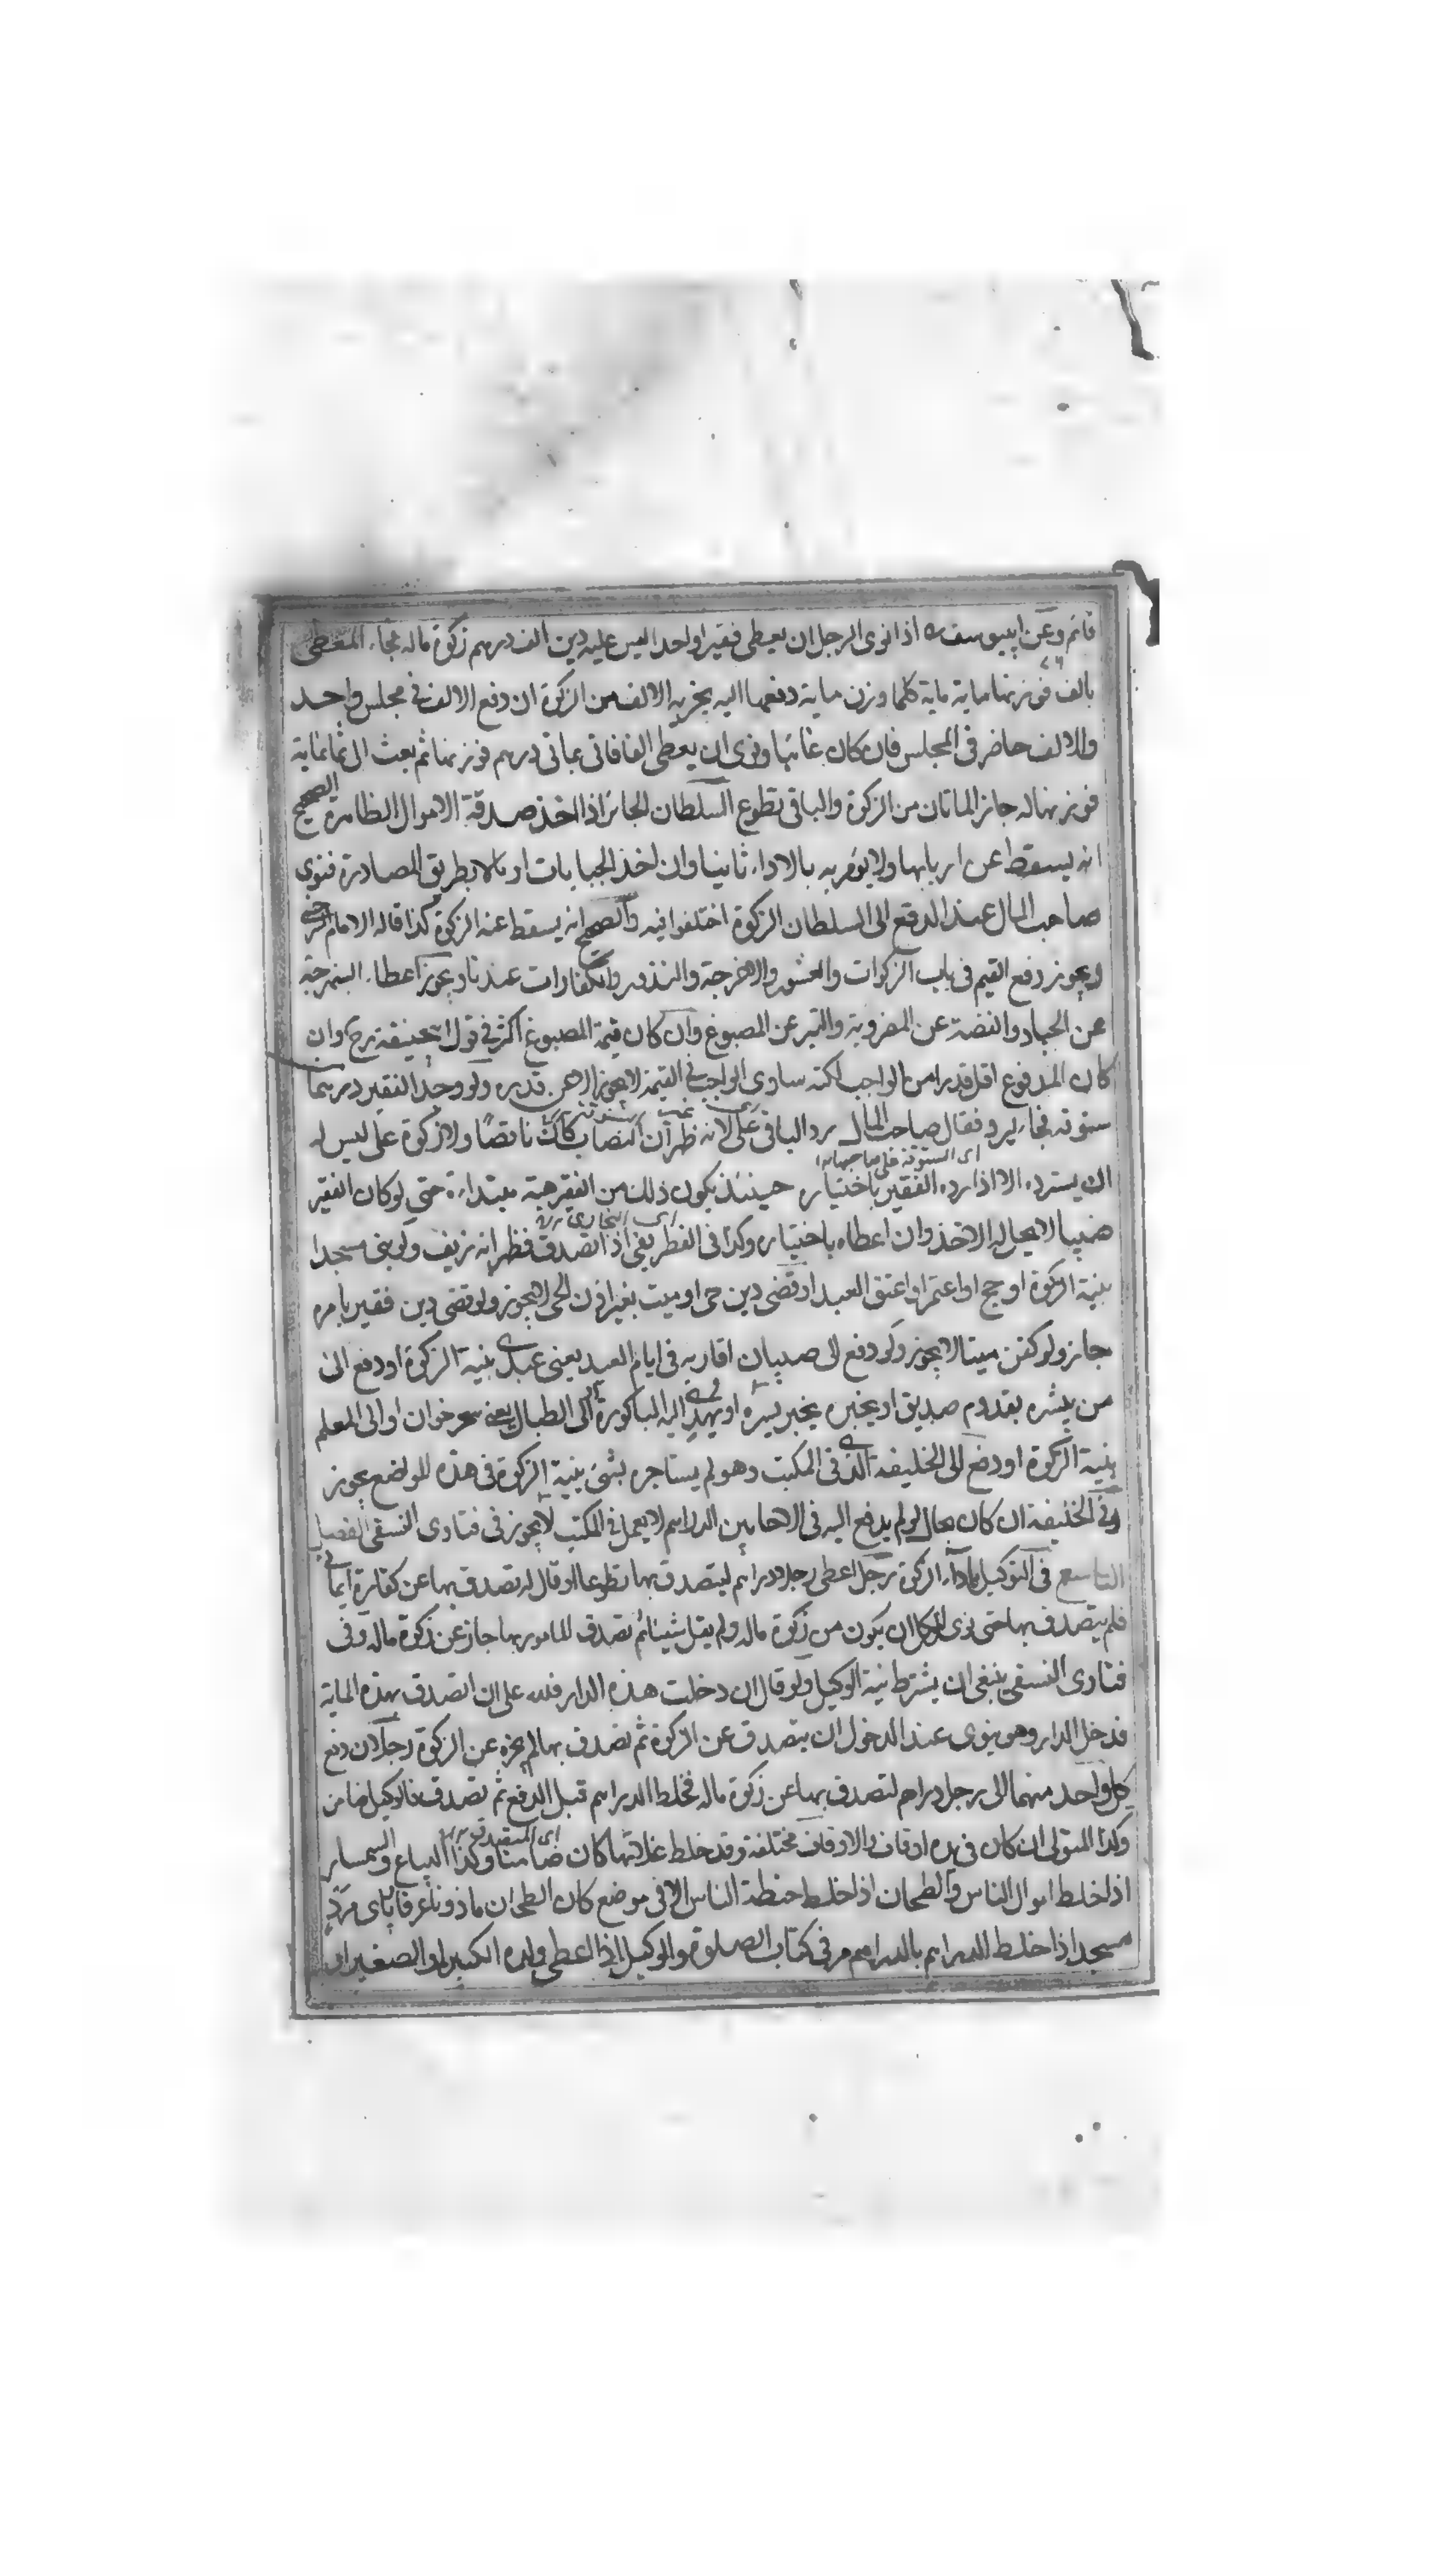 قائم وعن ابيوسف ره اذا نوى الرجل ان يعطى فقيرا واحدا ليس عليه دين الف درهم زكوة ماله فجاء المعطى
بالف فوزنها ماية ماية كلما وزن ماية دفعها اليه يجزيه الالف من الزكوة ان دفع الالف في مجلس واحد
والالف حاضر فى المجلس فان كان غائبا ونوى ان يعطى الفا فاتى بماتى درهم فوزنها ثم بعث الى ثمانماية
فوزنها له جاز الماتان من الزكوة والباقى تطوع السلطان الجائر اذا اخذ صدقة الاموال الظاهرة الصحيح
انه يسقط عن اربابها ولا يؤمر به بالاداء ثانيا وان اخذ الجبايات او مالا بطريق المصادرة فنوى
صاحب المال عند الدفع الى السلطان الزكوة اختلفوا فيه والصحيح انه يسقط عنه الزكوة كذا قاله الامام السرخسى
ويجوز دفع القيم فى باب الزكوات والعشور والاخرجة والنذور والكفارات عندنا ويجوز اعطاء البنهرجة
عن الجياد والفضة عن المضروبة والتبر عن المصبوغ وان كان قيمة المصبوغ اكثر في قول ابيحنيفة رح وان
كان المدفوع اقل قدرا من الواجب لكنه ساوى الواجب في القيمة لا يجوز الا عن قدره ولو وجد الفقير درهما
ستوقة فجاء ليرده فقال صاحب المال رد الباقى على لانه ظهر ان النصاب كان ناقصا ولا زكوة على ليس له
اى الستوقة على صاحبها
ان يسترده الا اذا رده الفقير باختياره حينئذ يكون ذلك من الفقير هبة مبتداءة حتى لو كان الفقير
صبيا لا يحل له الاخذ وان اعطاه باختياره وكذا فى الغطريفى اذا تصدق فظهر انه زيف ولو بنى مسجدا
بنية الزكوة او حج او اعتمر او اعتق العبد او قضى دين حى او ميت بغير اذن الحى لا يجوز ولو قضى دين فقير بامره
جاز ولو كفن ميتا لا يجوز ولو دفع الى صبيان اقاربه فى ايام العيد يعنى عيدى بنية الزكوة او دفع الى
من يبشره بقدوم صديق او يخبره بخبر يسره او يهدى اليه الباكورة او الى الطبال يعنى سحرخوان او الى المعلم
بنية الزكوة او دفع الى الخليفة الذى فى المكتب وهو لم يستاجره بشئ بنية الزكوة فى هذه المواضع يجوز
وفى الخليفة ان كان بحال لو لم يدفع اليه فى الاحايين الدراهم لا يعمل فى المكتب لا يجوز فى فتاوى النسفى الفصل
التاسع فى التوكيل باداء الزكوة رجل اعطى رجلا دراهم ليتصدق بها تطوعا او قال له تصدق بها عن كفارة ايمانى
فلم يتصدق بها حتى نوى الموكل ان يكون من زكوة ماله ولم يقل شيئا ثم تصدق المامور بها جاز عن زكوة ماله وفى
فتاوى النسفى ينبغى ان يشترط نية الوكيل ولو قال ان دخلت هذه الدار فلله على ان اتصدق بهذه الماية
فدخل الدار وهو ينوى عند الدخول ان يتصدق عن الزكوة ثم تصدق بها لم يجزه عن الزكوة رجلان دفع
كل واحد منهما الى رجل دراهم لتصدق بها عن زكوة ماله فخلط الدراهم قبل الدفع ثم تصدق فالوكيل ضامن
وكذا المتولى ان كان فى يده اوقاف والاوقاف مختلفة وقد خلط غلاتها كان ضامنا وكذا البياع والسمسار
اذا خلط اموال الناس والطحان اذا خلط حنطة الناس الا فى موضع كان الطحان ماذونا عرفا
مسجد اذا خلط الدراهم بالدراهم مر فى كتاب الصلوة والوكيل اذا اعطى ولده الكبير او الصغير او